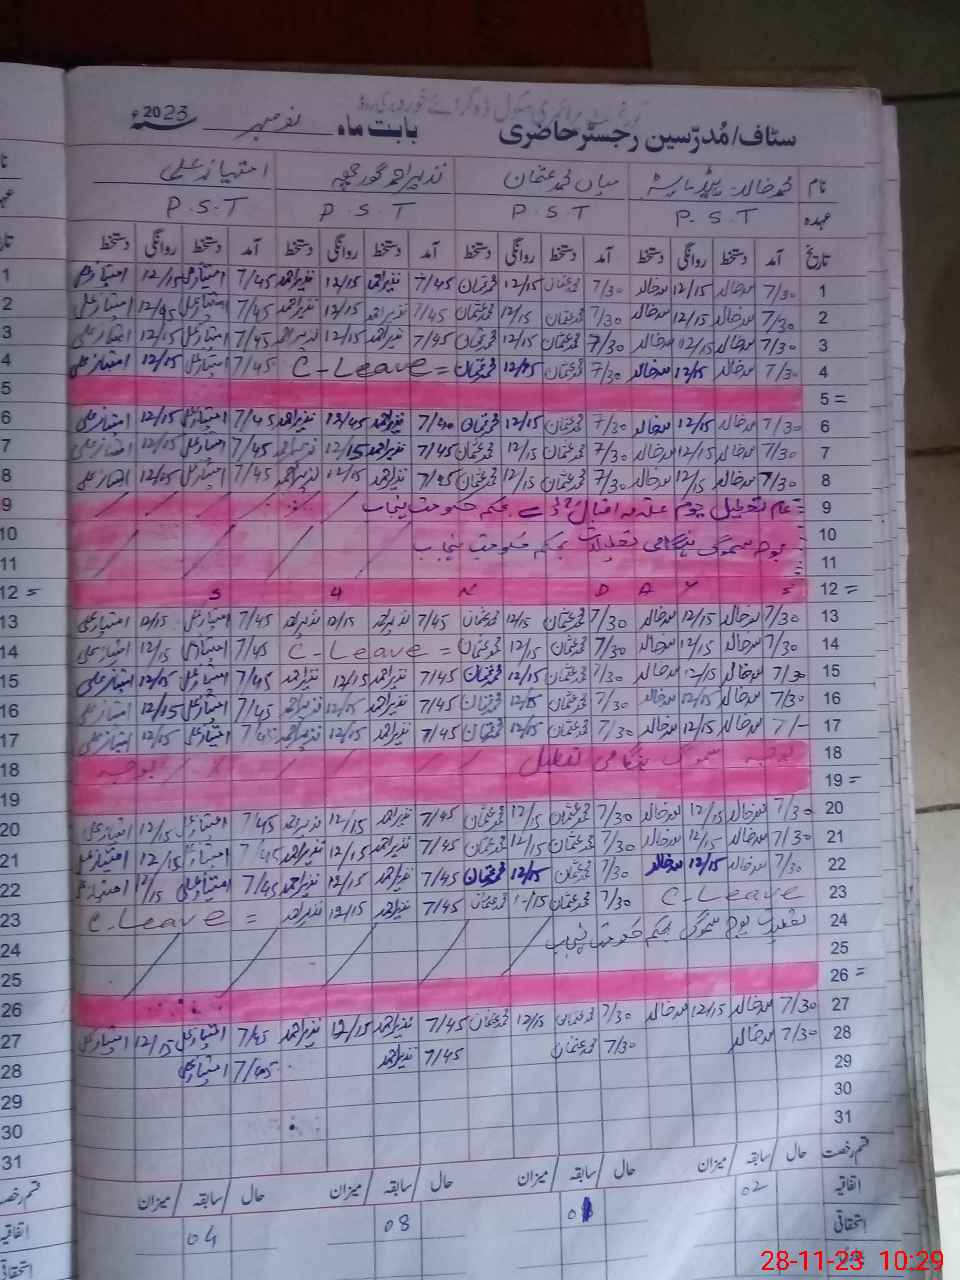 سٹاف/مُدرّسین رجسٹر حاضری بابت ماہ نومبر 2023ء
نام محمد خالد میاں محمد عثمان نذیر احمد امتیاز علی
عہدہ P.S.T P.S.T P.S.T P.S.T
تاریخ آمد دستخط روانگی دستخط آمد دستخط روانگی دستخط آمد دستخط روانگی دستخط آمد دستخط روانگی دستخط
1 7/30 محمد خالد 12/15 محمد خالد 7/30 محمد عثمان 12/15 محمد عثمان 7/45 نذیر احمد 12/15 نذیر احمد 7/45 امتیاز علی 12/15 امتیاز علی
2 7/30 محمد خالد 12/15 محمد خالد 7/30 محمد عثمان 12/15 محمد عثمان 7/45 نذیر احمد 12/15 نذیر احمد 7/45 امتیاز علی امتیاز علی
3 7/30 محمد خالد 12/15 محمد خالد 7/30 محمد عثمان 12/15 محمد عثمان 7/45 نذیر احمد 12/15 نذیر احمد 7/45 امتیاز علی 12/15 امتیاز علی
4 7/30 محمد خالد 12/15 محمد خالد 7/30 محمد عثمان 12/15 محمد عثمان = C-Leave 7/45 امتیاز علی 12/15 امتیاز علی
5 =
6 7/30 محمد خالد 12/15 محمد خالد 7/30 محمد عثمان 12/15 محمد عثمان نذیر احمد نذیر احمد 7/45 امتیاز علی 12/15 امتیاز علی
7 7/30 محمد خالد 12/15 محمد خالد 7/30 محمد عثمان 12/15 محمد عثمان 7/45 نذیر احمد 12/15 نذیر احمد 7/45 امتیاز علی 12/15 امتیاز علی
8 7/30 محمد خالد 12/15 محمد خالد 7/30 محمد عثمان 12/15 محمد عثمان 7/45 نذیر احمد 12/15 نذیر احمد 7/45 امتیاز علی 12/15 امتیاز علی
9 عام تعطیل یوم علامہ اقبال بحکم حکومت پنجاب
10 بوجہ سموگ ہنگامی تعطیلات بحکم حکومت پنجاب
11
12 = S U N D A Y =
13 7/30 محمد خالد 12/15 محمد خالد 7/30 محمد عثمان 12/15 محمد عثمان 7/45 نذیر احمد 12/15 نذیر احمد 7/45 امتیاز علی 12/15 امتیاز علی
14 7/30 محمد خالد 12/15 محمد خالد 7/30 محمد عثمان 12/15 محمد عثمان = C-Leave 7/45 امتیاز علی 12/15 امتیاز علی
15 7/30 محمد خالد 12/15 محمد خالد 7/30 محمد عثمان 12/15 محمد عثمان 7/45 نذیر احمد 12/15 نذیر احمد 7/45 امتیاز علی 12/15 امتیاز علی
16 7/30 محمد خالد 12/15 محمد خالد 7/30 محمد عثمان 12/15 محمد عثمان 7/45 نذیر احمد 12/15 نذیر احمد 7/45 امتیاز علی 12/15 امتیاز علی
17 7/- محمد خالد 12/15 محمد خالد 7/30 محمد عثمان 12/15 محمد عثمان 7/45 نذیر احمد 12/15 نذیر احمد 7/45 امتیاز علی 12/15 امتیاز علی
18 بوجہ سموگ ہنگامی تعطیل بوجہ
19 =
20 7/30 محمد خالد 12/15 محمد خالد 7/30 محمد عثمان 12/15 محمد عثمان 7/45 نذیر احمد 12/15 نذیر احمد 7/45 امتیاز علی 12/15 امتیاز علی
21 7/30 محمد خالد 12/15 محمد خالد 7/30 محمد عثمان 12/15 محمد عثمان 7/45 نذیر احمد 12/15 نذیر احمد 7/45 امتیاز علی 12/15 امتیاز علی
22 7/30 محمد خالد 12/15 محمد خالد 7/30 محمد عثمان 12/15 محمد عثمان 7/45 نذیر احمد 12/15 نذیر احمد 7/45 امتیاز علی 12/15 امتیاز علی
23 C-Leave 7/30 محمد عثمان 12/15 محمد عثمان 7/45 نذیر احمد 12/15 نذیر احمد = C-Leave
24 تعطیلات بوجہ سموگ بحکم حکومت پنجاب
25
26 =
27 7/30 محمد خالد 12/15 محمد خالد 7/30 محمد عثمان 12/15 محمد عثمان 7/45 نذیر احمد 12/15 نذیر احمد 7/45 امتیاز علی 12/15 امتیاز علی
28 7/30 محمد خالد 7/30 محمد عثمان 7/45 نذیر احمد 7/45 امتیاز علی
29
30
31
قسم رخصت حال / سابقہ / میزان حال / سابقہ / میزان حال / سابقہ / میزان حال / سابقہ / میزان
اتفاقیہ 02 08 04
استحقاقی
28-11-23 10:29